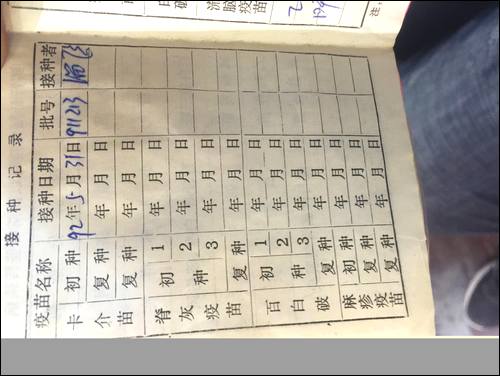 接种记录
疫苗名称 接种日期 批号 接种者
卡介苗 初种 92年5月31日 911213
复种 年 月 日
复种 年 月 日
脊灰疫苗 初种 1 年 月 日
2 年 月 日
3 年 月 日
复种 年 月 日
百白破 初种 1 年 月 日
2 年 月 日
3 年 月 日
复种 年 月 日
麻疹疫苗 初种 年 月 日
复种 年 月 日
复种 年 月 日